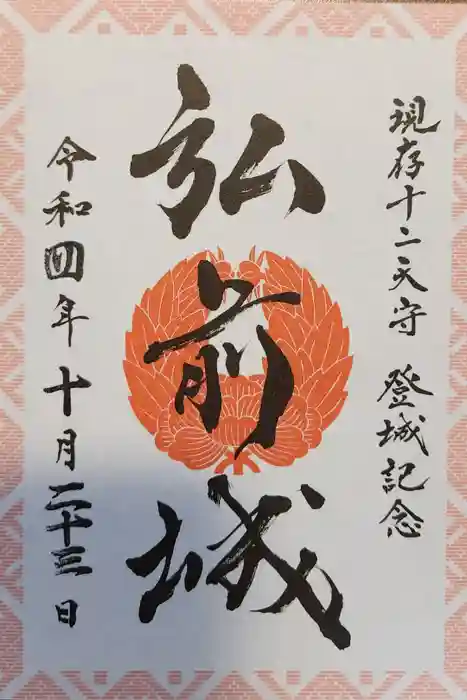 現存十二天守 登城記念
弘前城
令和四年十月二十三日